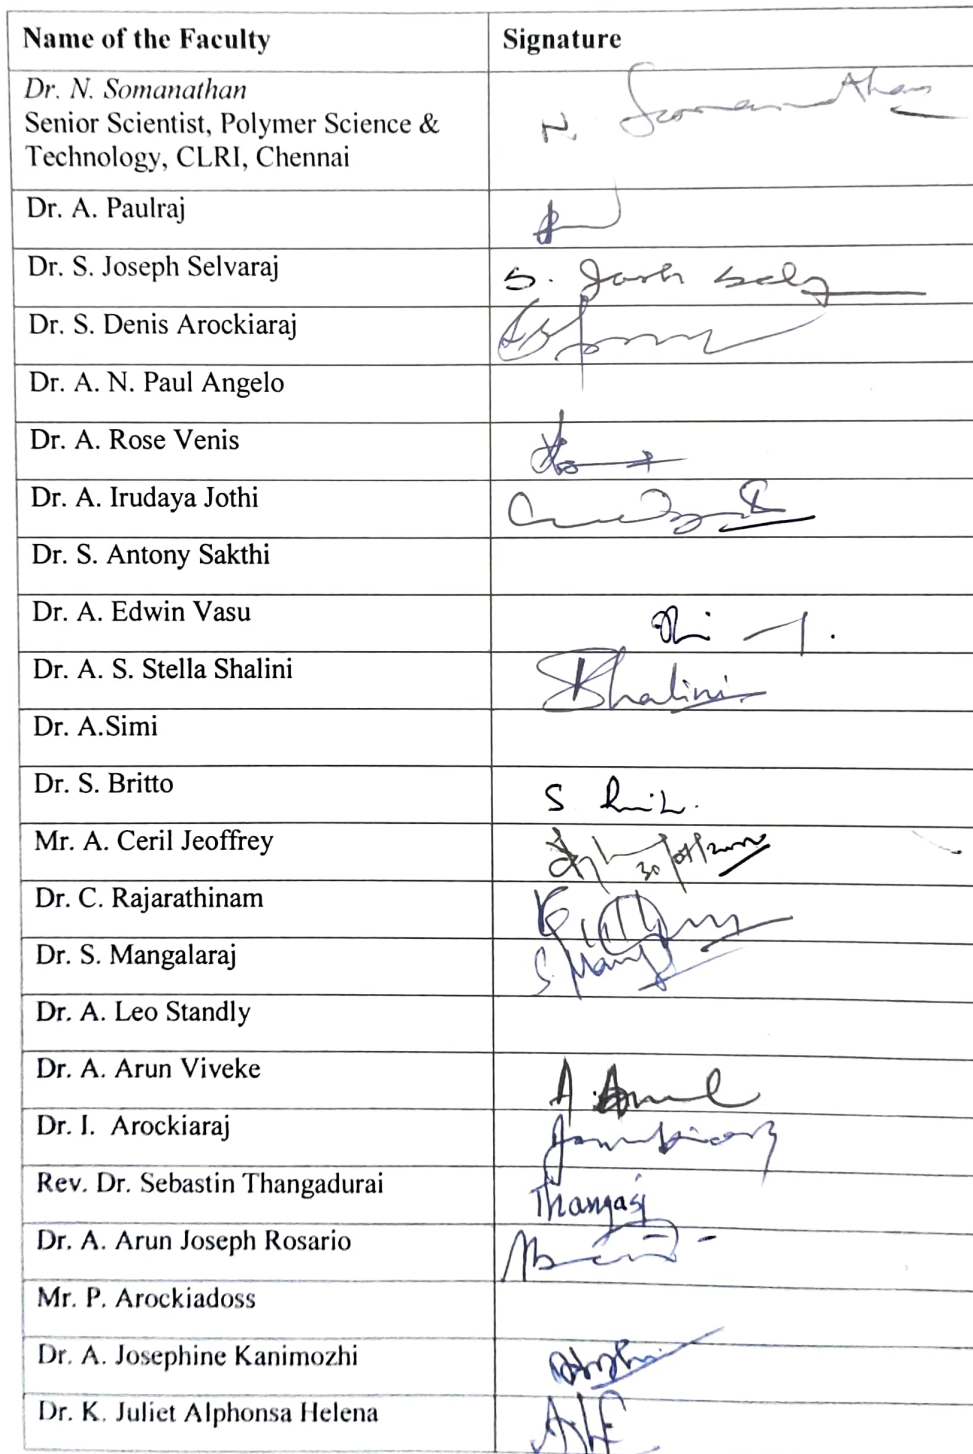 Name of the Faculty Signature
Dr. N. Somanathan
Senior Scientist, Polymer Science & N. Somanathan
Technology, CLRI, Chennai
Dr. A. Paulraj
Dr. S. Joseph Selvaraj
Dr. S. Denis Arockiaraj
Dr. A. N. Paul Angelo
Dr. A. Rose Venis
Dr. A. Irudaya Jothi
Dr. S. Antony Sakthi
Dr. A. Edwin Vasu
Dr. A. S. Stella Shalini Shalini
Dr. A.Simi
Dr. S. Britto
Mr. A. Ceril Jeoffrey
Dr. C. Rajarathinam
Dr. S. Mangalaraj
Dr. A. Leo Standly
Dr. A. Arun Viveke
Dr. I. Arockiaraj
Rev. Dr. Sebastin Thangadurai
Dr. A. Arun Joseph Rosario
Mr. P. Arockiadoss
Dr. A. Josephine Kanimozhi
Dr. K. Juliet Alphonsa Helena